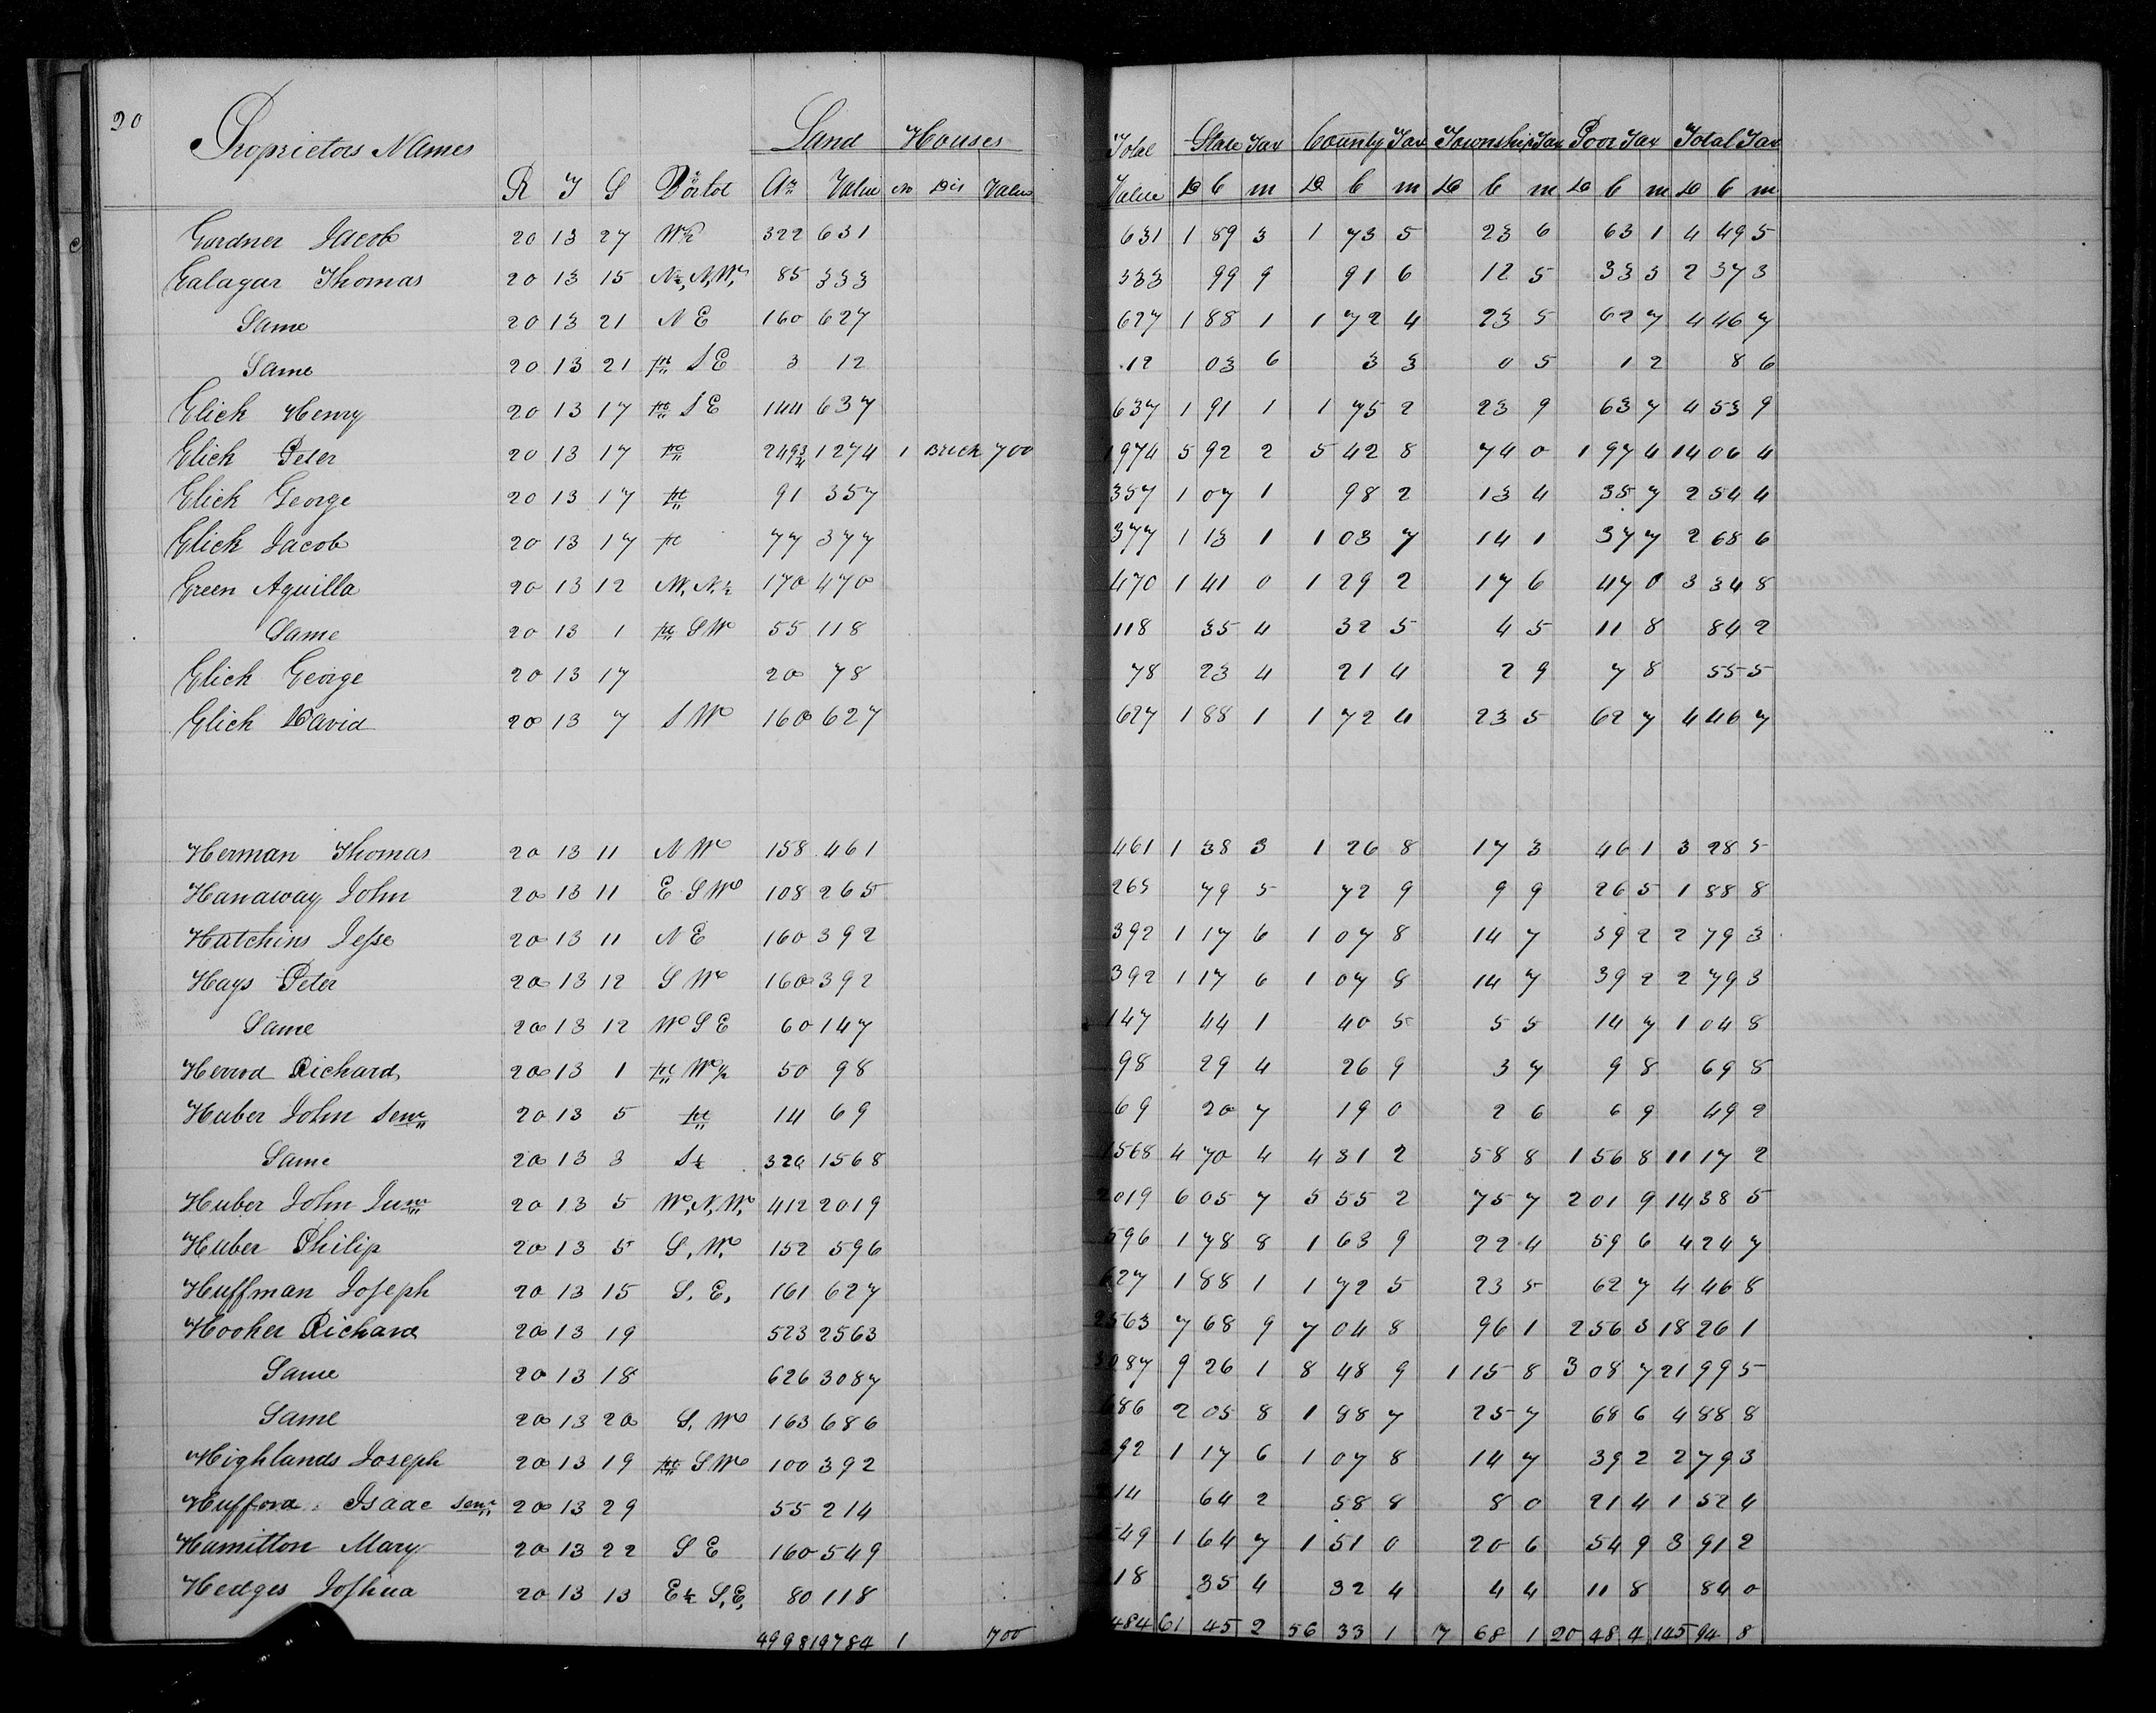 20
Proprietors Names Land Houses Total State Tax County Tax Township Tax Poor Tax Total Tax
R T S Value No Dis Value Value D C m D C m D C m D C m D C m
Gardner Jacob 20 13 27 W½ 322 631 631 1 89 3 1 73 5 23 6 63 1 4 49 5
Galagar Thomas 20 13 15 N½, N,W, 85 333 333 99 9 91 6 12 5 33 3 2 37 3
Same 20 13 21 N E 160 627 627 1 88 1 1 72 4 23 5 62 7 4 46 7
Same 20 13 21 pt S E 3 12 12 03 6 3 3 0 5 1 2 8 6
Glick Henry 20 13 17 pt S E 144 637 637 1 91 1 1 75 2 23 9 63 7 4 53 9
Glick Peter 20 13 17 pt 249¾ 1274 1 Brick 700 1974 5 92 2 5 42 8 74 0 1 97 4 14 06 4
Glick George 20 13 17 pt 91 357 357 1 07 1 98 2 13 4 35 7 2 54 4
Glick Jacob 20 13 17 pt 77 377 377 1 13 1 1 03 7 14 1 37 7 2 68 6
Green Aquilla 20 13 12 W, N,½ 170 470 470 1 41 0 1 29 2 17 6 47 0 3 34 8
Same 20 13 1 pt S W 55 118 118 35 4 32 5 4 5 11 8 84 2
Glick George 20 13 17 20 78 78 23 4 21 4 2 9 7 8 55 5
Glick David 20 13 7 S W 160 627 627 1 88 1 1 72 4 23 5 62 7 4 46 7
Herman Thomas 20 13 11 N W 158 461 461 1 38 3 1 26 8 17 3 46 1 3 28 5
Hanaway John 20 13 11 E S W 108 265 265 79 5 72 9 9 9 26 5 1 88 8
Hatchins Jesse 20 13 11 N E 160 392 392 1 17 6 1 07 8 14 7 39 2 2 79 3
Hays Peter 20 13 12 S W 160 392 392 1 17 6 1 07 8 14 7 39 2 2 79 3
Same 20 13 12 W S E 60 147 147 44 1 40 5 5 5 14 7 1 04 8
Herrod Richard 20 13 1 pt W½ 50 98 98 29 4 26 9 3 7 9 8 69 8
Huber John Senr 20 13 5 pt 14 69 69 20 7 19 0 2 6 6 9 49 2
Same 20 13 3 S½ 320 1568 1568 4 70 4 4 31 2 58 8 1 56 8 11 17 2
Huber John Junr 20 13 5 W, N, W, 412 2019 2019 6 05 7 5 55 2 75 7 2 01 9 14 38 5
Huber Philip 20 13 5 S, W, 152 596 596 1 78 8 1 63 9 22 4 59 6 4 24 7
Huffman Joseph 20 13 15 S. E, 161 627 627 1 88 1 1 72 5 23 5 62 7 4 46 8
Hooker Richard 20 13 19 523 2563 2563 7 68 9 7 04 8 96 1 2 56 3 18 26 1
Same 20 13 18 626 3087 3087 9 26 1 8 48 9 1 15 8 3 08 7 21 99 5
Same 20 13 20 S, W 163 686 686 2 05 8 1 98 7 25 7 68 6 4 88 8
Highlands Joseph 20 13 19 pt S W 100 392 92 1 17 6 1 07 8 14 7 39 2 2 79 3
Hufford Isaac Senr 20 13 29 55 214 14 64 2 58 8 8 0 21 4 1 52 4
Hamilton Mary 20 13 22 S E 160 549 549 1 64 7 1 51 0 20 6 54 9 3 91 2
Hedges Joshua 20 13 13 E½ S, E, 80 118 18 35 4 32 4 4 4 11 8 84 0
4998 19784 1 700 484 61 45 2 56 33 1 7 68 1 20 48 4 145 94 8